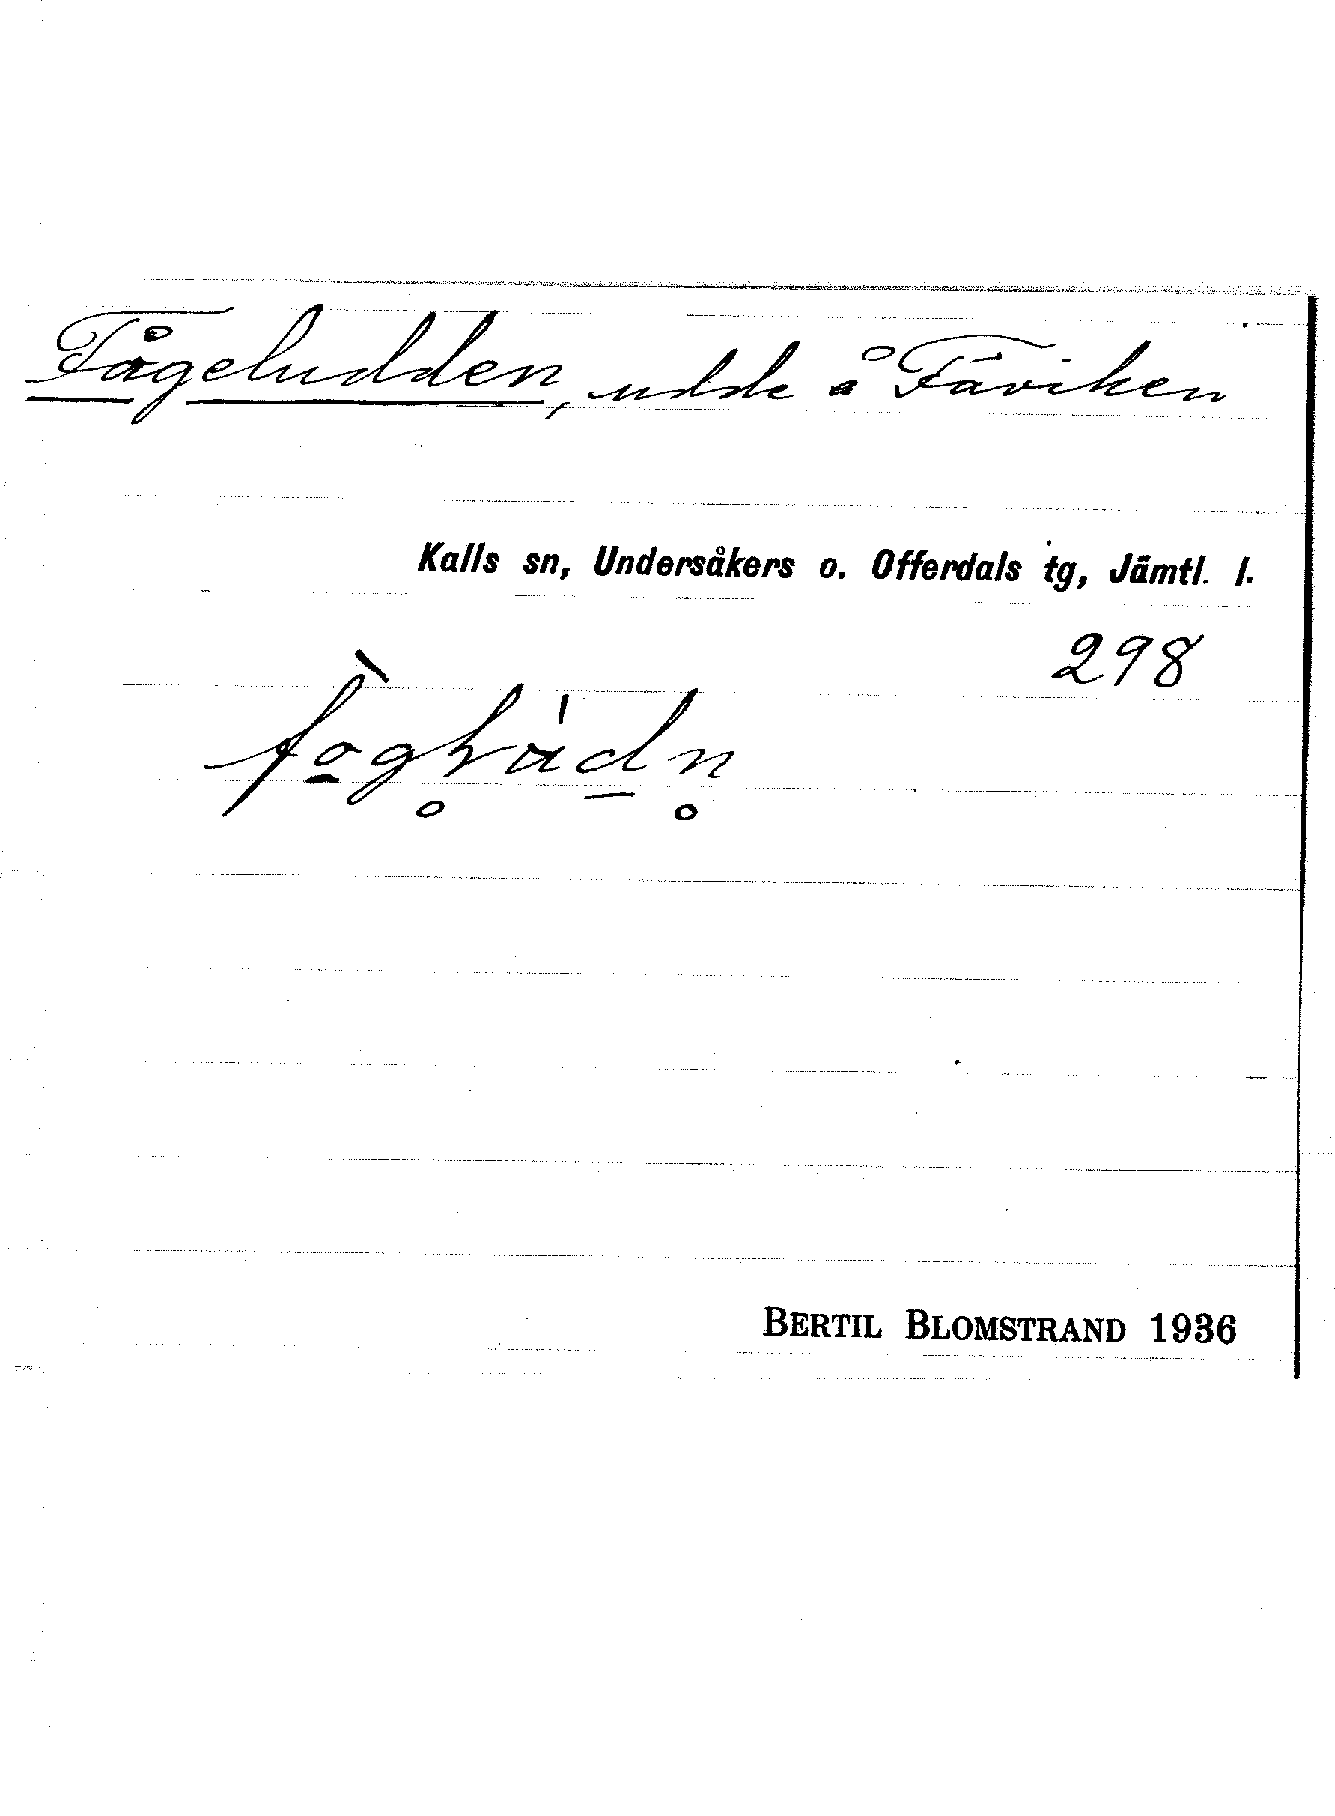 Fågeludden, udde å Fäviken
Kalls sn, Undersåkers o. Offerdals tg, Jämtl. l.
298
BERTIL BLOMSTRAND 1936